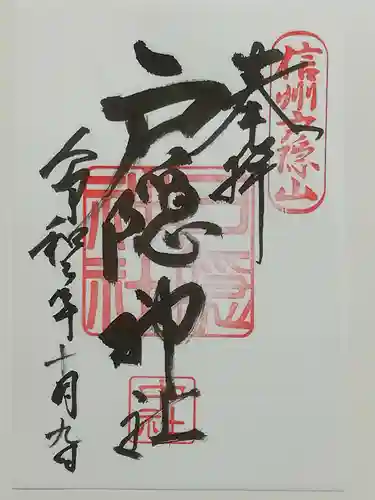 信州戸隠山
奉拝
戸隠神社
戸隠神社
中社
令和二年十月九日